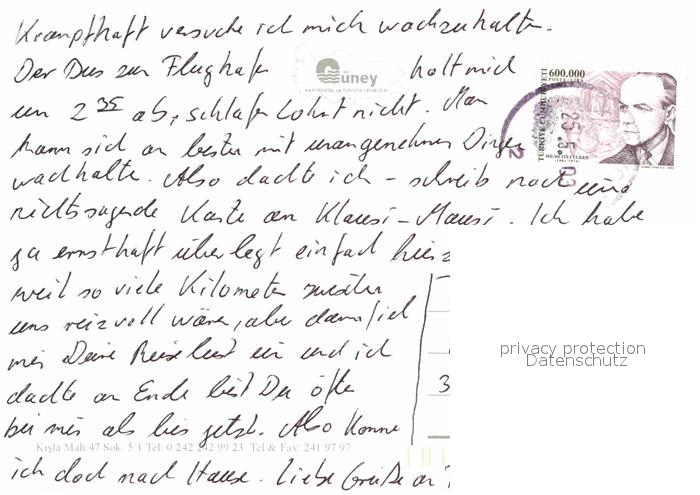 Krampfhaft versuche ich mich wachzuhalten.
Der Bus zum Flughafen holt mich
um 2 35 ab, schlafen lohnt nicht. Man
kann sich am besten mit unangenehmen Dingen
wachhalten. Also dachte ich – schreib noch eine
nichtssagende Karte an Klausi-Mausi. Ich habe
ja ernsthaft überlegt einfach hier z
weil so viele Kilometer zwischen
uns reizvoll wären, aber dann fiel
mir Deine Reiselust ein und ich
dachte am Ende bist Du öfter
bei mir als bis jetzt. Also komme
ich doch nach Hause. Liebe Grüße an
Güney
KARTPOSTAL ve TURİSTİK YAYINCILIK
600.000
POSTA - LİRA
TÜRKİYE CUMHURİYETİ
25.5.03
2
3
Kışla Mah.47 Sok. 5/1 Tel: 0.242 242 99 23 Tel & Fax: 241 97 97
privacy protection
Datenschutz